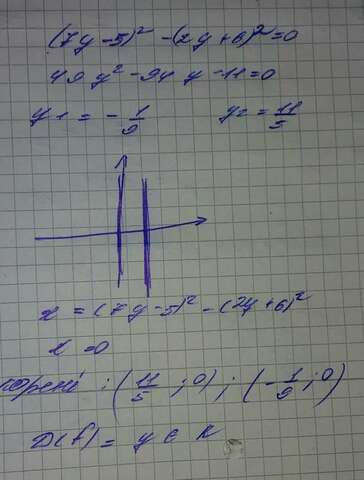 (7y-5)² -(2y+6)²=0
49y²-94y-11=0
y₁ = -1/9 y₂ = 11/5
x = (7y-5)² - (2y+6)²
x=0
корені : (11/5 ; 0) ; (-1/9 ; 0)
D(f) = y ∈ R